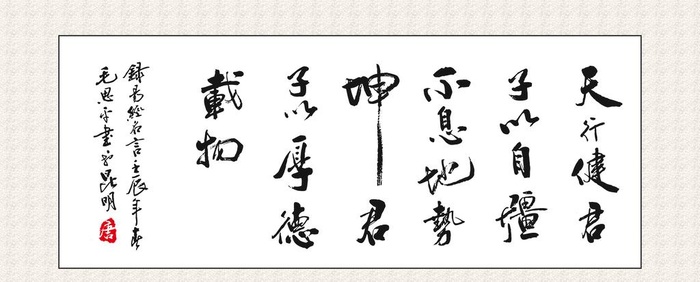 天行健君
子以自疆
不息地勢
坤君
子以厚德
載物
録易經名言壬辰年春
書於昆明